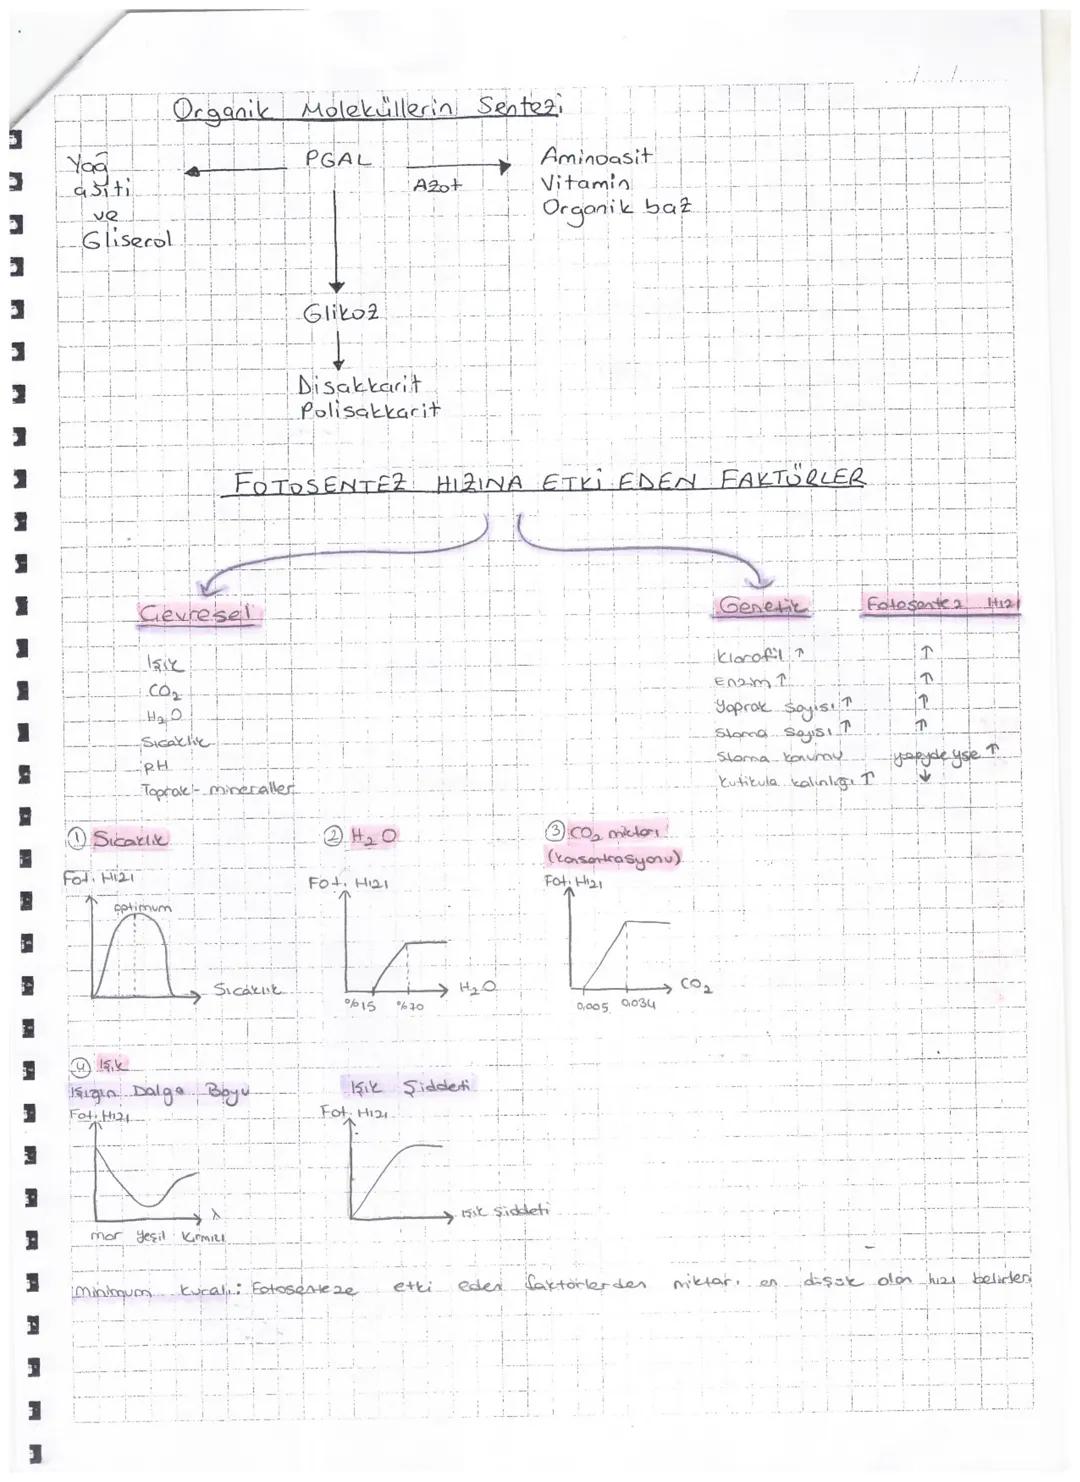 Organik Moleküllerin Sentezi
Yağ asiti ve Gliserol
PGAL
Azot
Aminoasit
Vitamin
Organik baz
Glikoz
Disakkarit
Polisakkarit
FOTOSENTEZ HIZINA ETKİ EDEN FAKTÖRLER
Çevresel
Işık
CO₂
H₂O
Sıcaklık
pH
Toprak - mineraller
Genetik Fotosentez Hızı
Klorofil ↑ ↑
Enzim ↑ ↑
Yaprak Sayısı ↑ ↑
Stoma Sayısı ↑ ↑
Stoma konumu yüzeydeyse ↑
Kutikula kalınlığı ↑ ↓
① Sıcaklık
Fot. Hızı
optimum
Sıcaklık
② H₂O
Fot. Hızı
H₂O
%15 %30
③ CO₂ miktarı
(konsantrasyonu)
Fot. Hızı
CO₂
0,005 0,034
④ Işık
Işığın Dalga Boyu
Fot. Hızı
λ
mor Yeşil Kırmızı
Işık Şiddeti
Fot. Hızı
ışık şiddeti
minimum kuralı: Fotosenteze etki eden faktörlerden miktarı en düşük olan hızı belirler